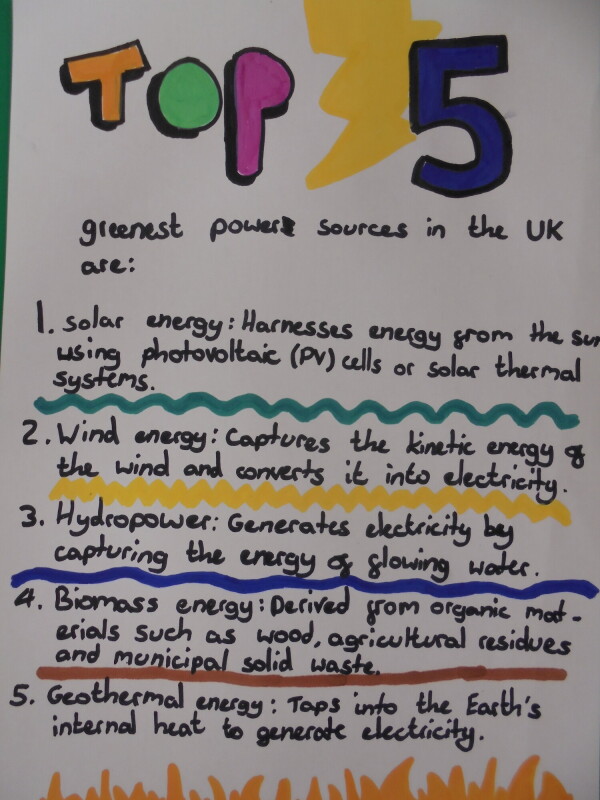 TOP 5
greenest power sources in the UK
are:
1. Solar energy: Harnesses energy from the sun
using photovoltaic (PV) cells or solar thermal
systems.
2. Wind energy: Captures the kinetic energy of
the wind and converts it into electricity.
3. Hydropower: Generates electricity by
capturing the energy of flowing water.
4. Biomass energy: Derived from organic mat-
erials such as wood, agricultural residues
and municipal solid waste.
5. Geothermal energy: Taps into the Earth's
internal heat to generate electricity.